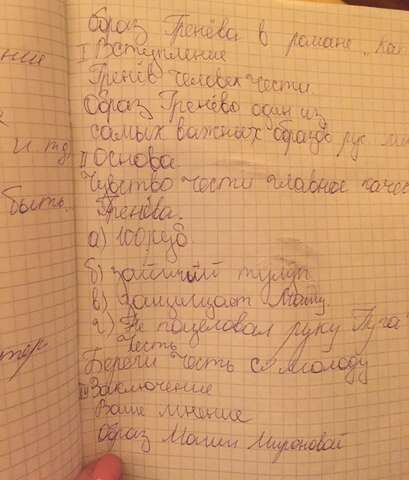 ние
и тд
быть.
образ Гренёва в романе „Кап
I Вступление
Гренёв человек чести.
Образ Гренёво один из
самых важных образов рус. ли
II основа.
Чувство чести главное качес
Гренёва.
а) 100 руб
б) заячий тулуп
в) защищает Машу.
г) Не поцеловал руку Пуга
честь
Береги честь с молоду
Заключение
Ваше мнение
Образ Маши Мироновой